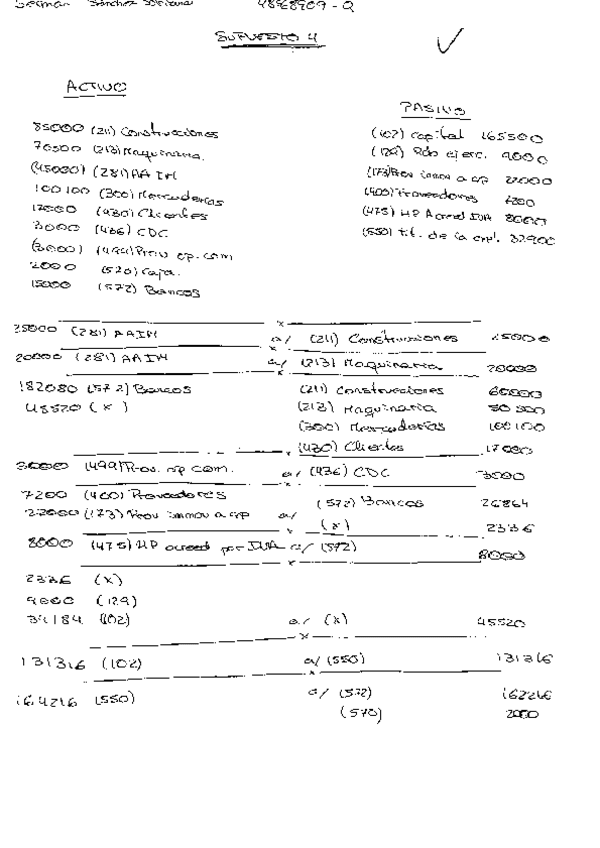 Sánchez 48528909-Q
SUPUESTO 4
ACTIVO
PASIVO
85000 (211) Construcciones
70500 (213) Maquinaria.
(45000) (281) AAIM
100100 (300) Mercaderías
17000 (430) Clientes
3000 (436) CDC
(3000) (499) Prov op. com
2000 (570) Caja.
15000 (572) Bancos
(102) capital 165500
(129) Rdo ejerc. 9000
(173) Prov inmov a c/p 22000
(400) Proveedores 7200
(475) HP Acreed IVA 8000
(550) tit. de la expl. 32900
25000 (281) AAIM a/ (211) Construcciones 25000
20000 (281) AAIM a/ (213) Maquinaria 20000
182080 (572) Bancos (211) Construcciones 60000
45520 (x) (213) Maquinaria 50500
(300) Mercaderías 100100
(430) Clientes 17000
3000 (499) Prov. op com. a/ (436) CDC 3000
7200 (400) Proveedores (572) Bancos 26864
22000 (173) Prov inmov a c/p a/ (x) 2336
8000 (475) HP acreed por IVA a/ (572) 8000
2336 (x)
9000 (129)
34184 (102) a/ (x) 45520
131316 (102) a/ (550) 131316
164216 (550) a/ (572) 162216
(570) 2000